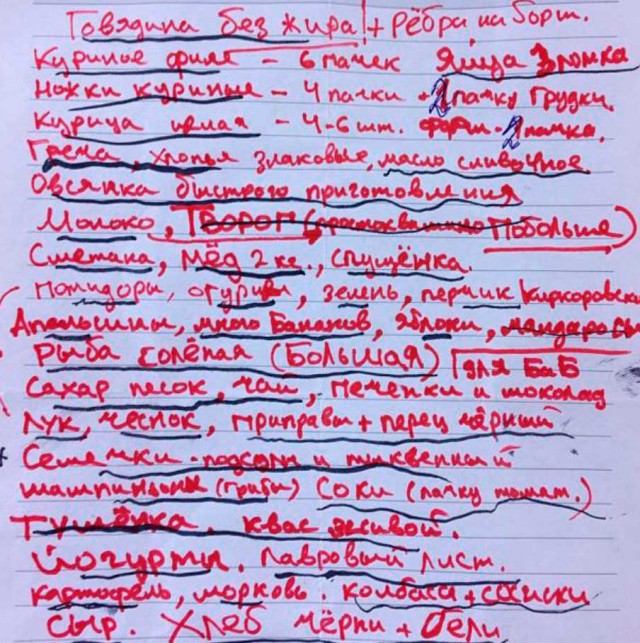 Говядина без жира! + Рёбра на борщ.
Куриное филе - 6 пачек Яйца 3 лотка
Ножки куриные - 4 пачки + 1 пачку грудки.
Курица целая - 4-6 шт. фарш - 2 пачка.
Греча, хлопья злаковые, масло сливочное.
Овсянка быстрого приготовления
Молоко, ТВОРОГ Побольше)
Сметана, мёд 2 кг., сгущёнка.
помидоры, огурцы, зелень, перчик Киркоровск
Апельсины, много Бананов, яблоки,
Рыба солёная (БОЛЬШАЯ) для БиБ
Сахар песок, чай, печенки и шоколад
Лук, чеснок, приправы + перец чёрный
Семечки - подсолн и тыквенный
шампиньоны (грибы) Соки (пачку томат.)
Тушёнка. квас живой.
Йогурты. Лавровый лист.
картофель, морковь. колбаса + сосиски
Сыр. Хлеб чёрны + бели